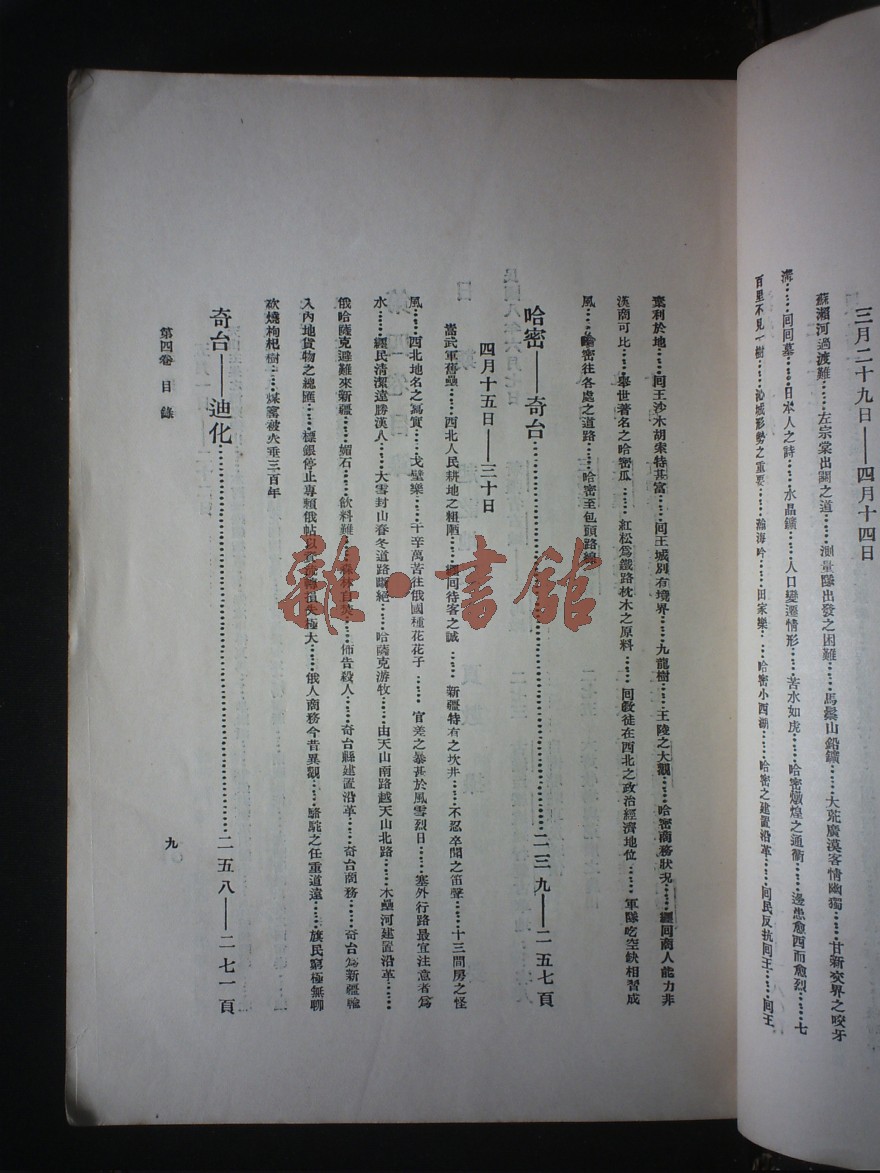 三月二十九日——四月十四日
蘇瀨河過渡難……左宗棠出關之道……測量隊出發之困難……馬鬃山鉛鑛……大荒廣漠客情幽獨……甘新交界之咬牙
溝……回回墓……日本人之詩……水晶鑛……人口變遷情形……苦水如虎……哈密燉煌之通衢……邊患愈西而愈烈……七
百里不見一樹……沁城形勢之重要……瀚海吟……田家樂……哈密小西湖……哈密之建置沿革……回民反抗回王……回王
棄利於地……回王沙木胡索特甚富……回王城別有境界……九龍樹……王陵之大觀……哈密商務狀況……纒回商人能力非
漢商可比……舉世著名之哈密瓜……紅松爲鐵路枕木之原料……回敎徒在西北之政治經濟地位……軍隊吃空缺相習成
風……哈密往各處之道路……哈密至包頭路線
哈密——奇台……二三九——二五七頁
四月十五日——三十日
嵩武軍舊壘……西北人民耕地之粗陋……纒回待客之誠……新疆特有之坎井……不忍卒聞之笛聲……十三間房之怪
風……西北地名之寫實……戈壁樂……千辛萬苦往俄國種花花子……官差之暴甚於風雪烈日……塞外行路最宜注意者爲
水……纒民清潔遠勝漢人……大雪封山春冬道路斷絕……哈薩克游牧……由天山南路越天山北路……木壘河建置沿革……
俄哈薩克避難來新疆……媚石……飲料難……森林自焚……佈告殺人……奇台縣建置沿革……奇台商務……奇台爲新疆輸
入內地貨物之總匯……標銀停止專類俄帖以損失極大……俄人商務今昔異觀……駱駝之任重道遠……旗民窮極無聊
砍燒枸杞樹……煤窰被火垂三百年
奇台——迪化……二五八——二七一頁
第四卷 目錄
九
雜·書館